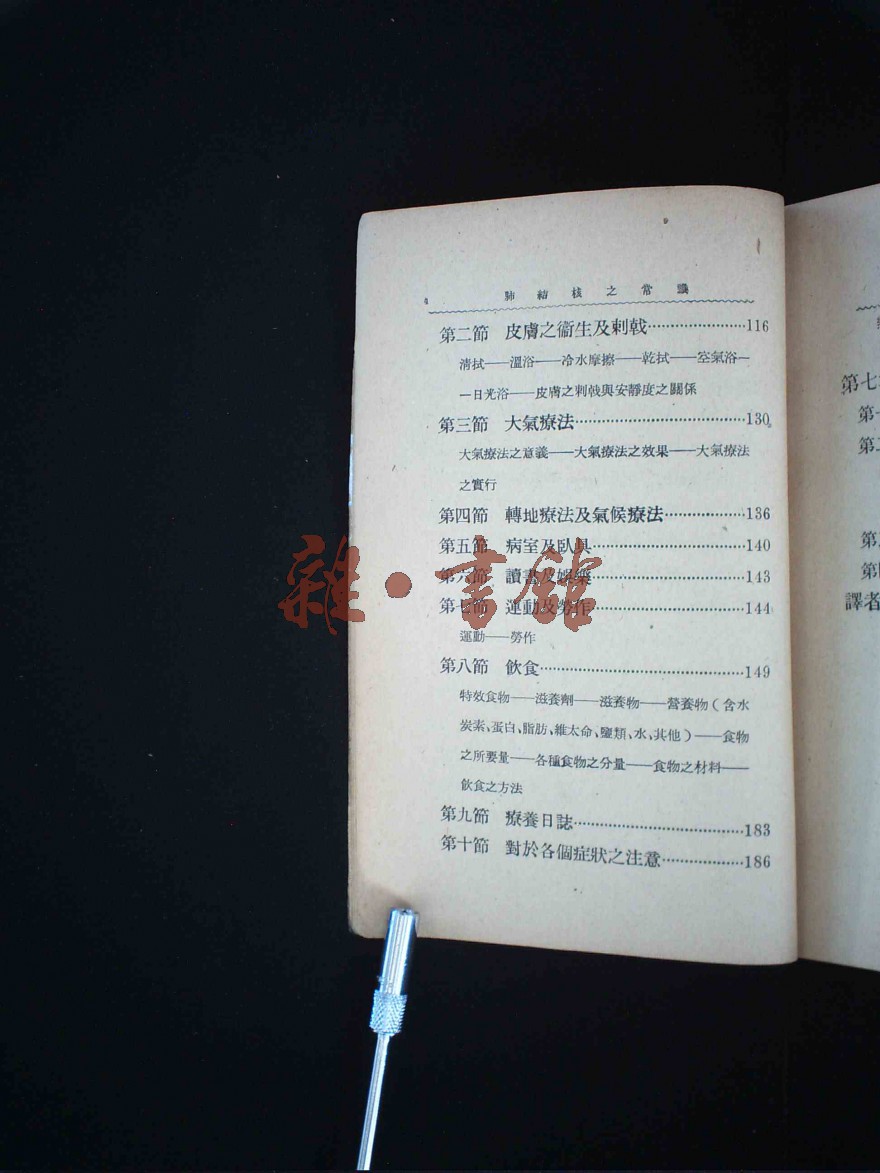 4 肺結核之常識
第二節 皮膚之衞生及刺戟……………………116
清拭——溫浴——冷水摩擦——乾拭——空氣浴—
—日光浴——皮膚之刺戟與安靜度之關係
第三節 大氣療法……………………………………130
大氣療法之意義——大氣療法之效果——大氣療法
之實行
第四節 轉地療法及氣候療法………………136
第五節 病室及臥具………………………………140
第六節 讀書及娛樂………………………………143
第七節 運動及勞作………………………………144
運動——勞作
第八節 飲食……………………………………………149
特效食物——滋養劑——滋養物——營養物(含水
炭素、蛋白、脂肪、維太命、鹽類、水、其他)——食物
之所要量——各種食物之分量——食物之材料——
飲食之方法
第九節 療養日誌……………………………………183
第十節 對於各個症狀之注意………………186
雜·書館
第七
第
第
第
第
譯者